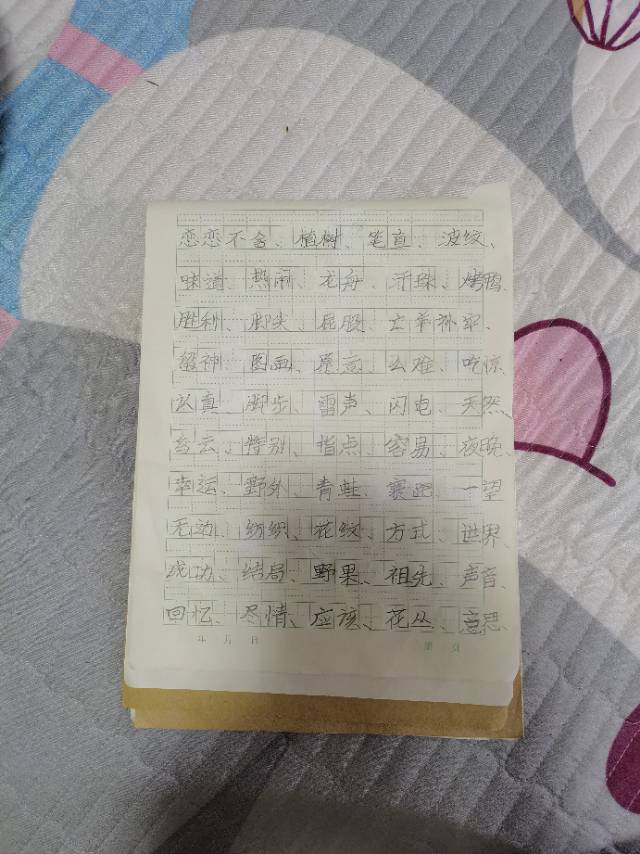 恋恋不舍、植树、笔直、波纹、
味道、热闹、龙舟、汗珠、烤鸭
胜利、脚尖、屁股、亡羊补牢、
精神、图画、愿意、么难、吃惊
认真、脚步、雷声、闪电、天然、
乌云、特别、指点、容易、夜晚、
幸运、野外、青蛙、一望
无边、纺织、花纹、方式、世界、
成功、结局、野果、祖先、声音、
回忆、尽情、应该、花丛、意思、
年 月 日
第 页